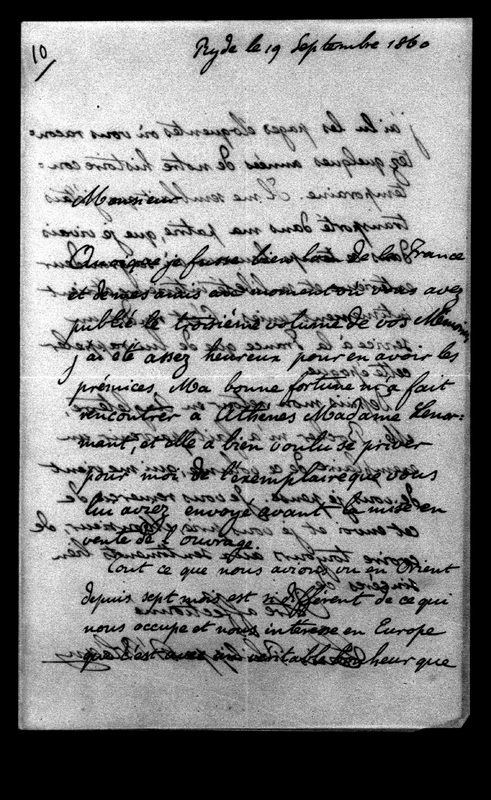 10
Ryde le 19 Septembre 1860
Monsieur
Quoique je fusse bien loin de la France
et de mes amis au moment où vous avez
publié le troisième volume de vos Mémoires
j'ai été assez heureux pour en avoir les
prémices. Ma bonne fortune m'a fait
rencontrer à Athènes Madame Lenor-
mant, et elle a bien voulu se priver
pour moi de l'exemplaire que vous
lui aviez envoyé avant la mise en
vente de l'ouvrage.
Tout ce que nous avons vu en Orient
depuis sept mois est si différent de ce qui
nous occupe et nous intéresse en Europe
que c'est avec un véritable bonheur que